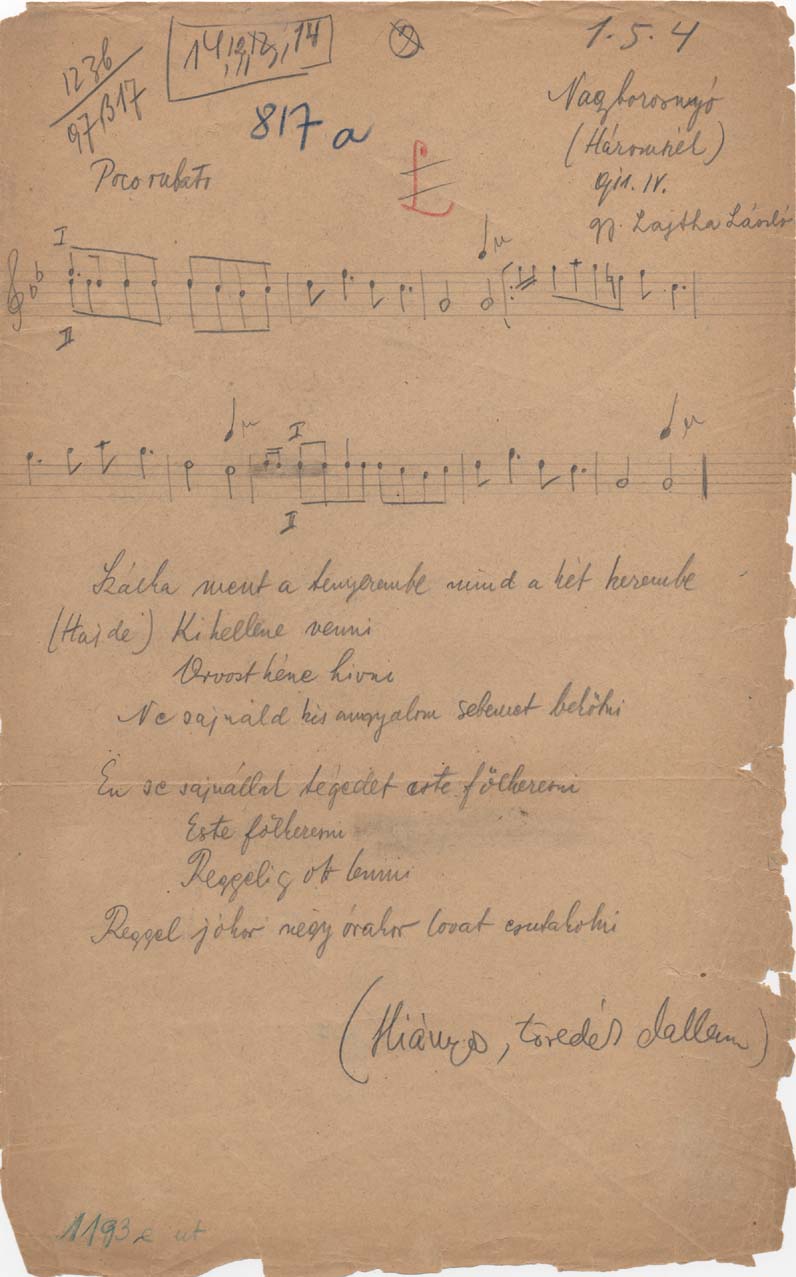 1236
14
1.5.4
817 a
Nagyborosnyó
(Háromszél)
Poco rubato
gy. Lajtha László
I
II
I
II
Szálka ment a tenyerembe mind a két kezembe
(Hajde) Ki kellene venni
Orvost kéne hivni
Ne sajnáld kis angyalom sebemet bekötni
Én se sajnállat tégedet este fölkeresni
Este fölkeresni
Reggelig ott lenni
Reggel jókor négy órakor lovat csutakolni
(Hiányos, töredés dallam)
1193 ut